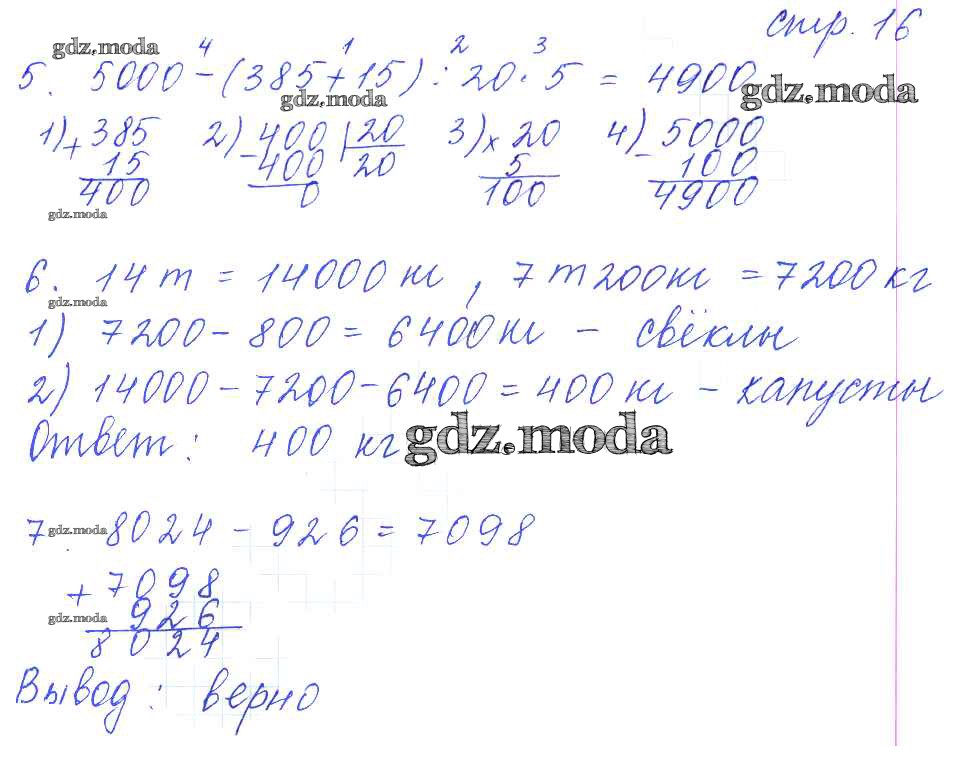 стр. 16
gdz.moda
4 1 2 3
5. 5000 - (385 + 15) : 20 · 5 = 4900
gdz.moda gdz.moda
1) + 385 2) - 400 | 20 3) × 20 4) - 5000
15 400 20 5 100
400 0 100 4900
gdz.moda
6. 14 т = 14000 кг, 7 т 200 кг = 7200 кг
gdz.moda
1) 7200 - 800 = 6400 кг - свёклы
2) 14000 - 7200 - 6400 = 400 кг - капусты
Ответ: 400 кг gdz.moda
7. gdz.moda 8024 - 926 = 7098
+ 7098
gdz.moda 926
8024
Вывод: верно